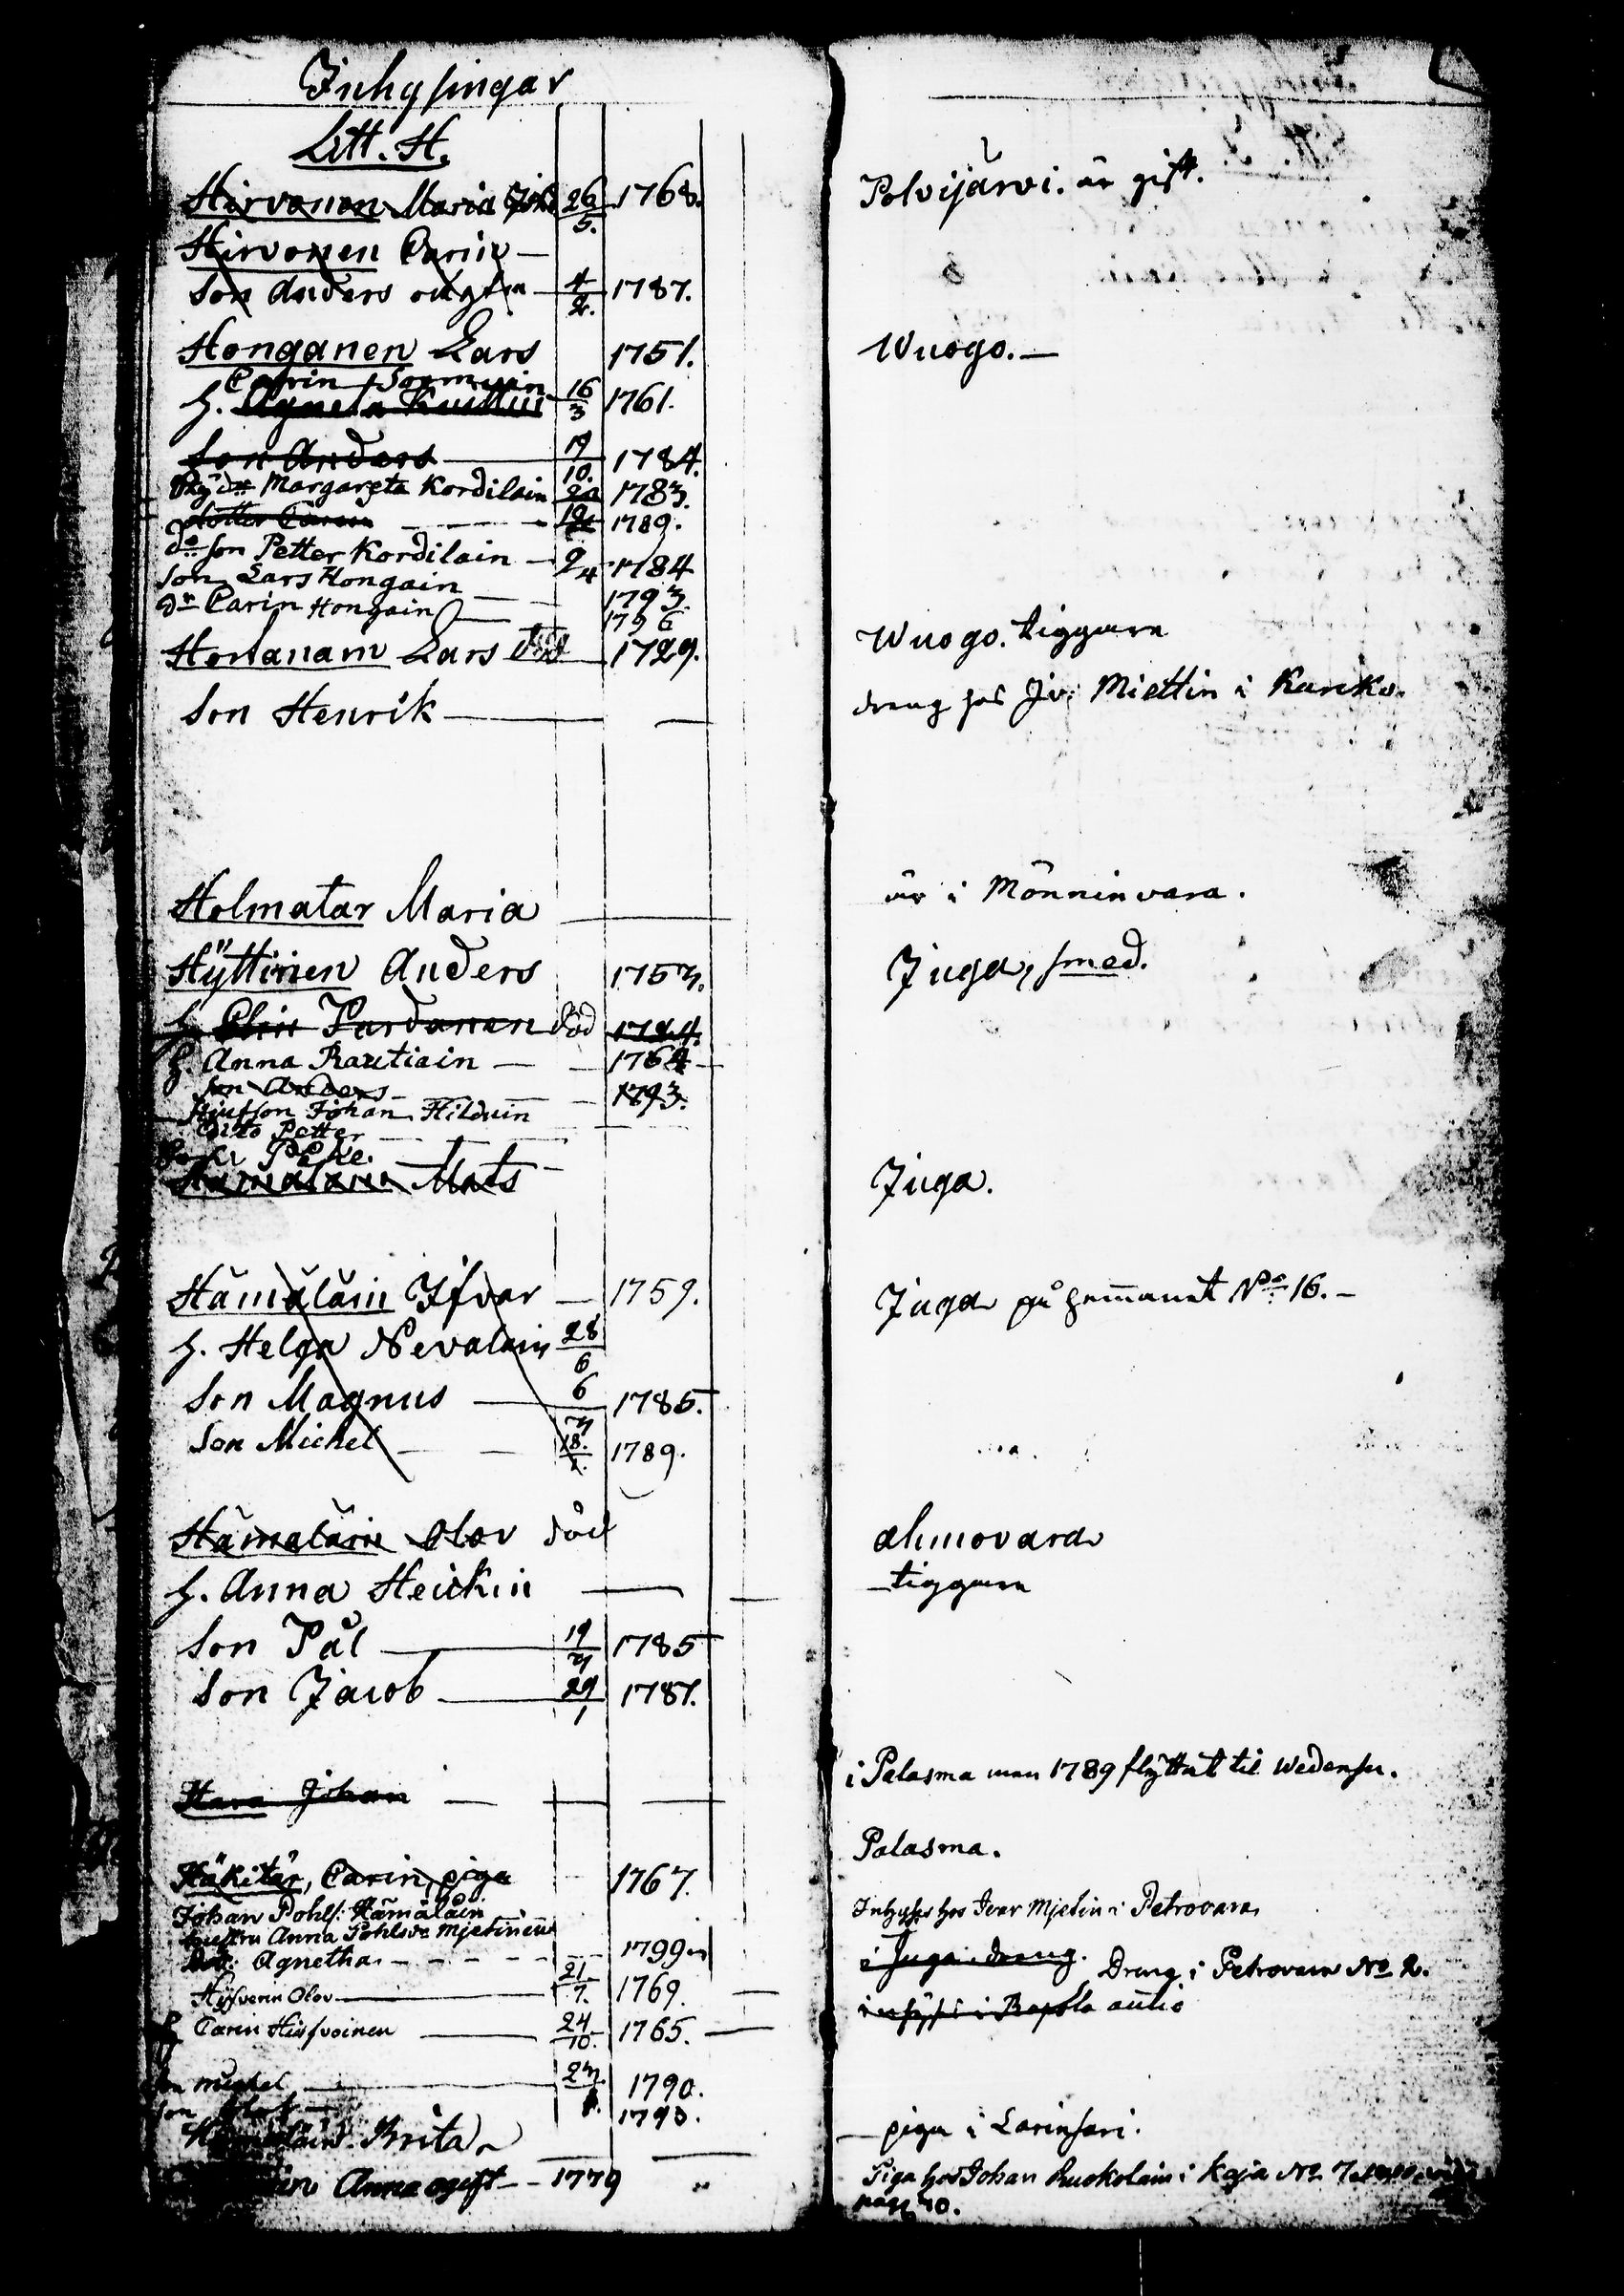 Inhysingar
Litt. H.
Hirvonen Maria 26/5. 1768. Polvijärvi. är gift.
Hirvonen Carin —
Son Anders oägta 4/2. 1787.
Honganen Lars 1751. Wuogo. —
Carin Sormuin
h. Agneta 16/3 1761.
Son Anders 19/10. 1784.
Margareta Kordilain 1783.
dotter Carin 1789.
do son Petter Kordilain — 9/4 1784
Son Lars Hongain — 1793.
dr Carin Hongain — 1796
Honanain Lars död 1729. Wuogo. tiggare
Son Henrik — — dreng hos Miettin i
Holmatar Maria — är i Mönninvara.
Hyttinen Anders 1757. Juga, smed.
h. Elin Pardanen död
h. Anna Rautiain — 1764
Son Anders — 1793.
Stiufson Johan Hilduin
Ditto Petter —
Hämäläin Mats Juga.
Hämäläin Ifvar — 1759. Juga på hemmanet No 16. —
h. Helga Nevalain 28/6
Son Magnus — 6/7 1785.
Son Michel — 18. 1789.
Hämäläin Olov död Ahmovara
h. Anna Heickin — tiggare
Son Pål — 19/7 1785
Son Jacob — 29/1 1787.
Hara Johan — — i Palasma men 1789 flyttat til
Häkitär, Carin, piga 1767. Palasma.
Johan Pohls: Hämäläin Inhyses hos Ivar Mjetin i Petrovara
hustru Anna Pohlsdr Mjetinen
Dot: Agnetha — 1799 i Juga. dreng. Dreng i Petrovara No 2.
Olov — 21/7. 1769.
h Carin — 24/10. 1765.
Son Michel — 1790.
Son — 1793.
Hämäläin Brita — piga i Larinsari.
Anna ogift — 1779 " Piga hos Johan Ruokolain i Kaja No 7
pag 40.